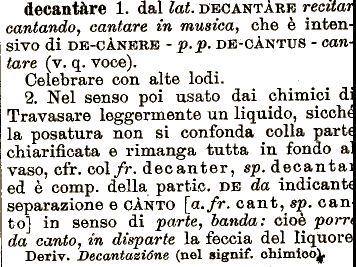 decantàre 1. dal lat. DECANTÀRE recitar
cantando, cantare in musica, che è inten-
sivo di DE-CÀNERE - p. p. DE-CÀNTUS - can-
tare (v. q. voce).
Celebrare con alte lodi.
2. Nel senso poi usato dai chimici di
Travasare leggermente un liquido, sicchè
la posatura non si confonda colla parte
chiarificata e rimanga tutta in fondo al
vaso, cfr. col fr. decanter, sp. decantar
ed è comp. della partic. DE da indicante
separazione e CÀNTO [a. fr. cant, sp. can-
to] in senso di parte, banda: cioè porre
da canto, in disparte la feccia del liquore
Deriv. Decantazióne (nel signif. chimico).